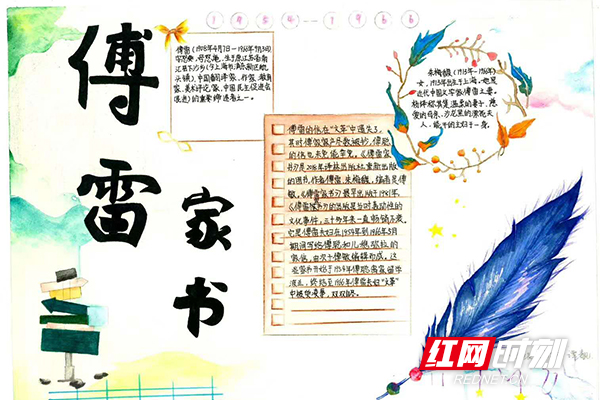 1954—1966
傅雷家书
傅雷(1908年4月7日—1966年9月3日)
字怒安,号怒庵,生于原江苏省南
汇县下沙乡(今上海市浦东新区航
头镇),中国翻译家、作家、教育
家、美术评论家,中国民主促进会
的重要缔造者之一。
朱梅馥(1913年—1966年)
女,1913年出生于上海,她是
近代中国文学家傅雷之妻。
杨绛称其集温柔的妻子、慈
爱的母亲、沙龙里的漂亮夫
人、能干的主妇于一身。
傅雷的信在“文革”中遗失了。
其时傅家家产尽数被抄,傅聪
的信也未能幸免。《傅雷家
书》是2016年译林出版社重新出版
的图书,作者傅雷、朱梅馥、
《傅雷家书》最早出版于1981年,
《傅雷家书》的出版是当时轰动性的
文化事件,三十多年来一直畅销不衰。
它是傅雷夫妇在1954年到1966年5月
期间写给傅聪和儿媳弥拉的
家信,由次子傅敏编辑而成。这
些家书开始于1954年傅聪离家留学
波兰,终结至1966年傅雷夫妇“文革”
中被迫害,双双自尽。
红网时刻
REDNET.CN